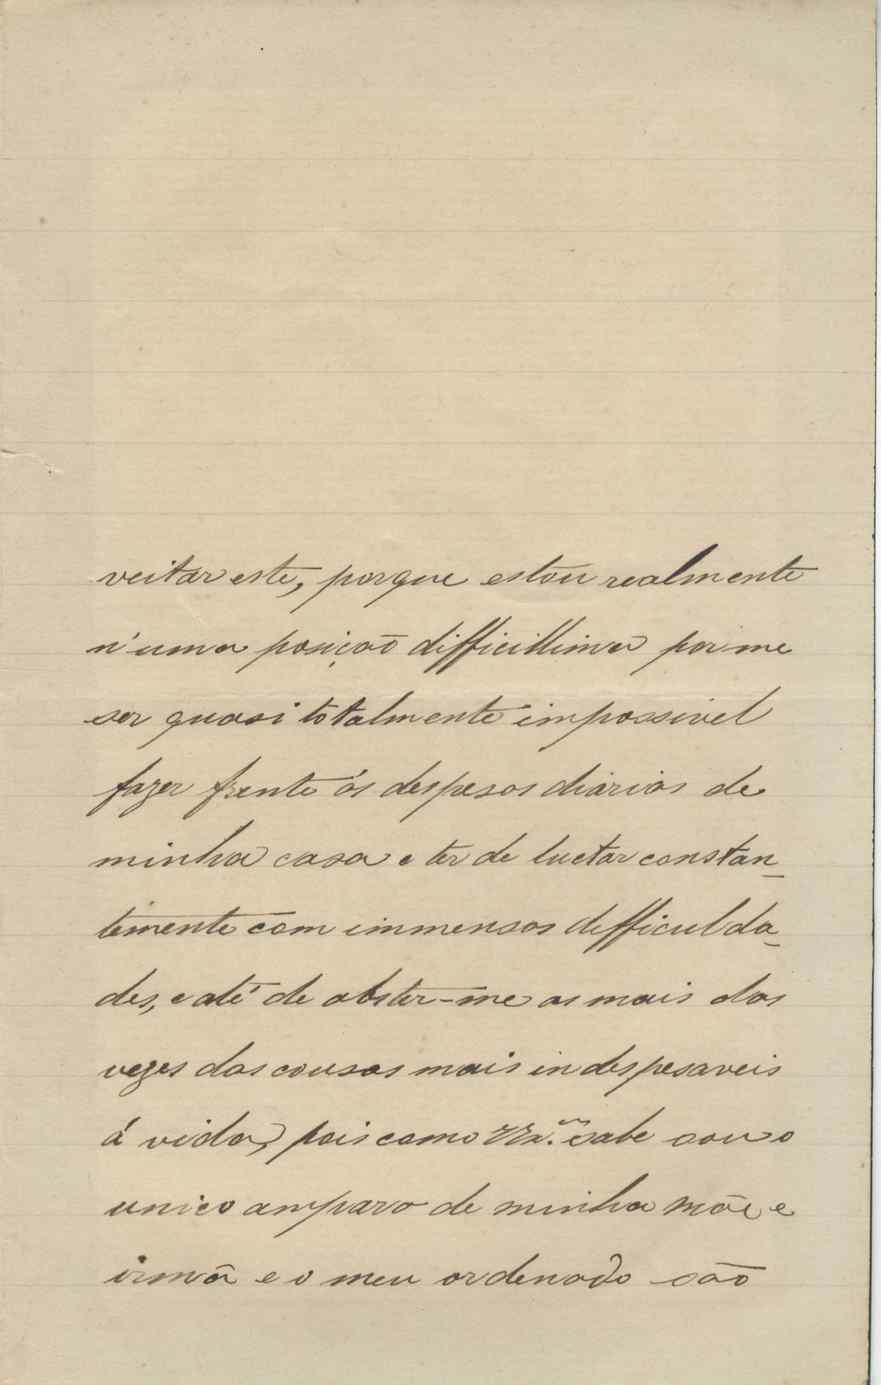 veitar este, porque estou realmente
n'uma posição difficillima por me
ser quasi totalmente impossivel
fazer frente ás despesas diarias de
minha casa e ter de luctar constan-
temente com immensas difficulda-
des, e até de abster-me as mais das
vezes das cousas mais indespesaveis
á vida, pois como V Ex.ª sabe sou o
unico amparo de minha mãe e
irmã e o meu ordenado são